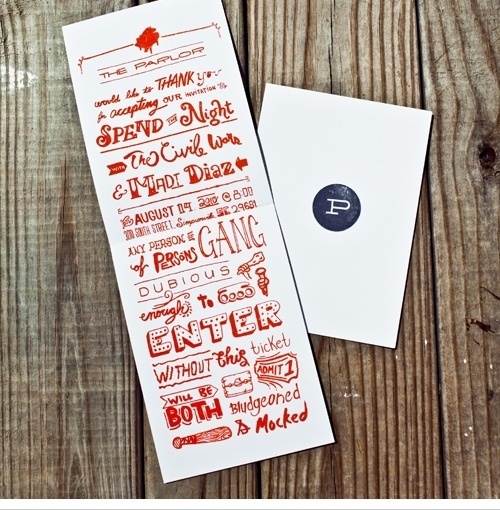 THE PARLOR
would like to THANK you
for accepting OUR INVITATION to
SPEND THE Night
WITH The Civil Wars
& MADI DIAZ
ON AUGUST 14, 2010 @ 8:00
SMITH STREET, Simpsonville, SC 29681
ANY PERSON OR GANG
of PERSONS
DUBIOUS
enough to
ENTER
WITHOUT this ticket
ADMIT 1
WILL BE
BOTH Bludgeoned
& Mocked
P